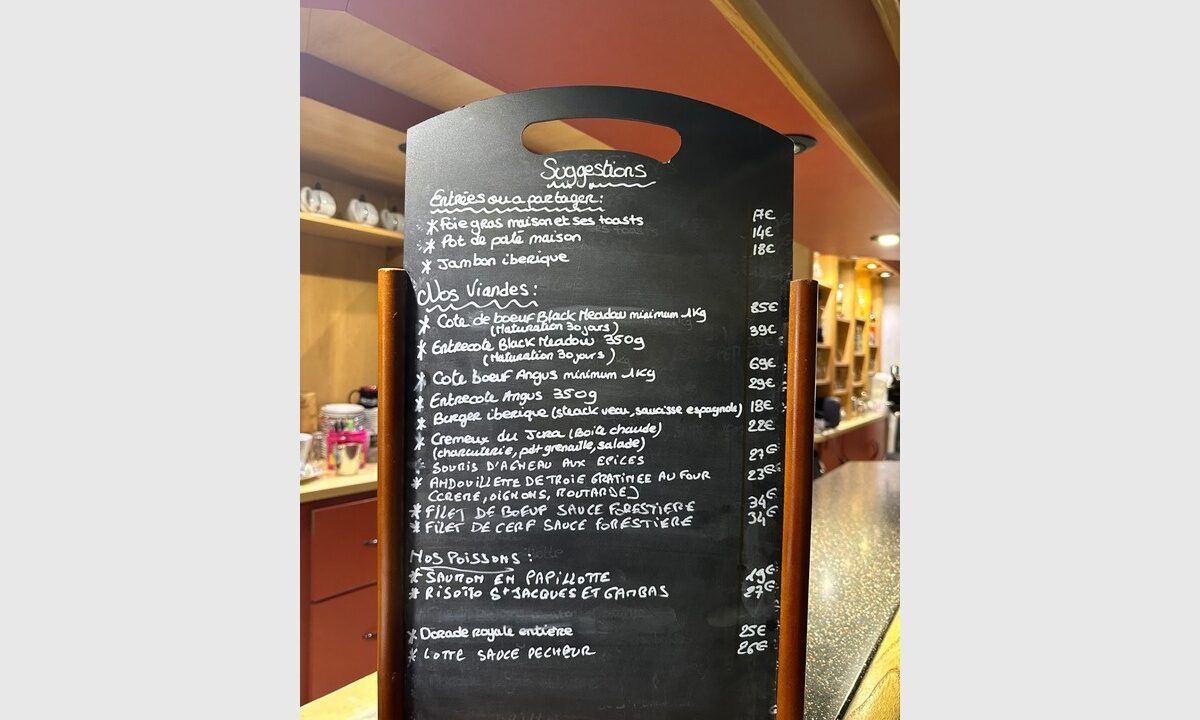 Suggestions
Entrées ou a partager :
* Foie gras maison et ses toasts 17€
* Pot de paté maison 14€
* Jambon iberique 18€
Nos Viandes :
* Cote de boeuf Black Meadow minimum 1Kg 85€
(Maturation 30 jours)
* Entrecote Black Meadow 350g 39€
(Maturation 30 jours)
* Cote boeuf Angus minimum 1Kg 69€
* Entrecote Angus 350g 29€
* Burger iberique (steack veau, saucisse espagnole) 18€
* Cremeux du Jura (Boite chaude) 22€
(charcuterie, pdt grenaille, salade)
* SOURIS D'AGNEAU AUX EPICES 27€
* ANDOUILLETTE DE TROIE GRATINEE AU FOUR 23€
(CREME, OIGNONS, MOUTARDE)
* FILET DE BOEUF SAUCE FORESTIERE 34€
* FILET DE CERF SAUCE FORESTIERE 34€
NOS POISSONS :
* SAUMON EN PAPILLOTTE 19€
* RISOTTO ST JACQUES ET GAMBAS 27€
* Dorade royale entière 25€
* LOTTE SAUCE PECHEUR 26€